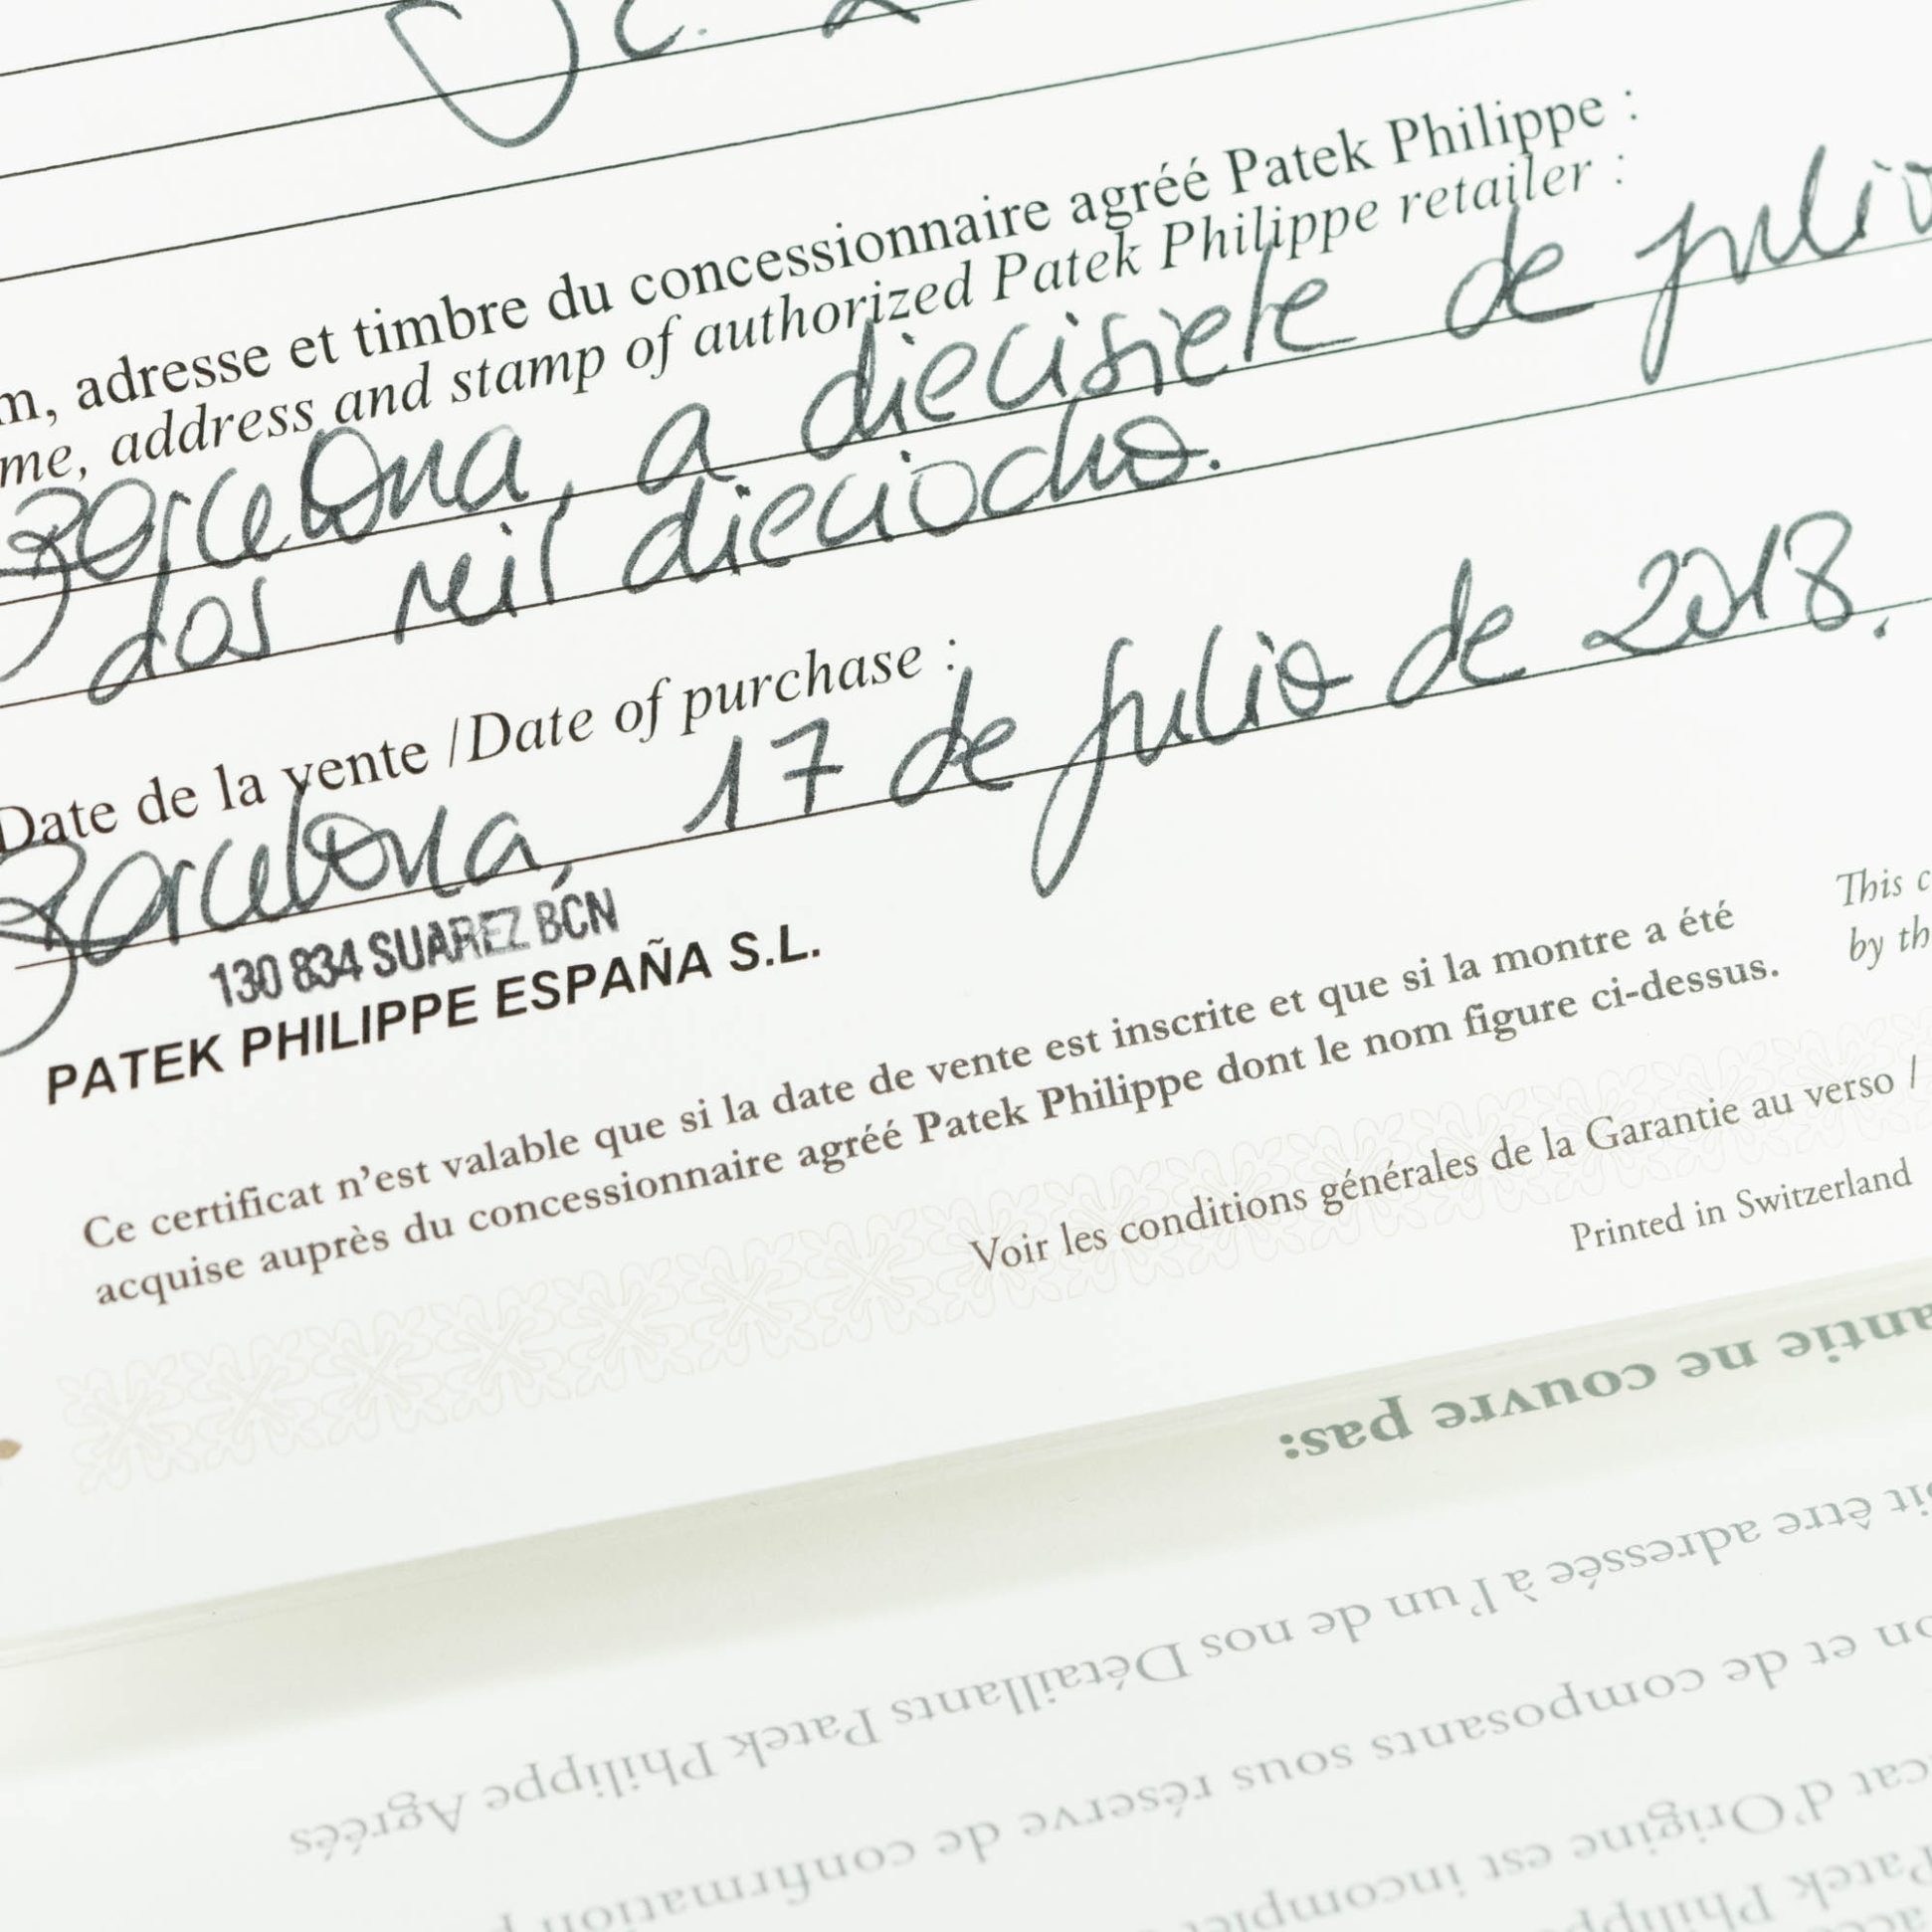 c.
m, adresse et timbre du concessionnaire agréé Patek Philippe :
me, address and stamp of authorized Patek Philippe retailer :
Barcelona, a diecisiete de julio
dos mil dieciocho.
Date de la vente / Date of purchase :
Barcelona, 17 de julio de 2018.
130 834 SUAREZ BCN
PATEK PHILIPPE ESPAÑA S.L.
Ce certificat n'est valable que si la date de vente est inscrite et que si la montre a été
acquise auprès du concessionnaire agréé Patek Philippe dont le nom figure ci-dessus.
This c
by th
Voir les conditions générales de la Garantie au verso /
Printed in Switzerland
antie ne couvre pas:
it être adressée à l'un de nos Détaillants Patek Philippe Agréés
on et de composants sous réserve de confirmation p
cat d'Origine est incomplet
Patek Philippe